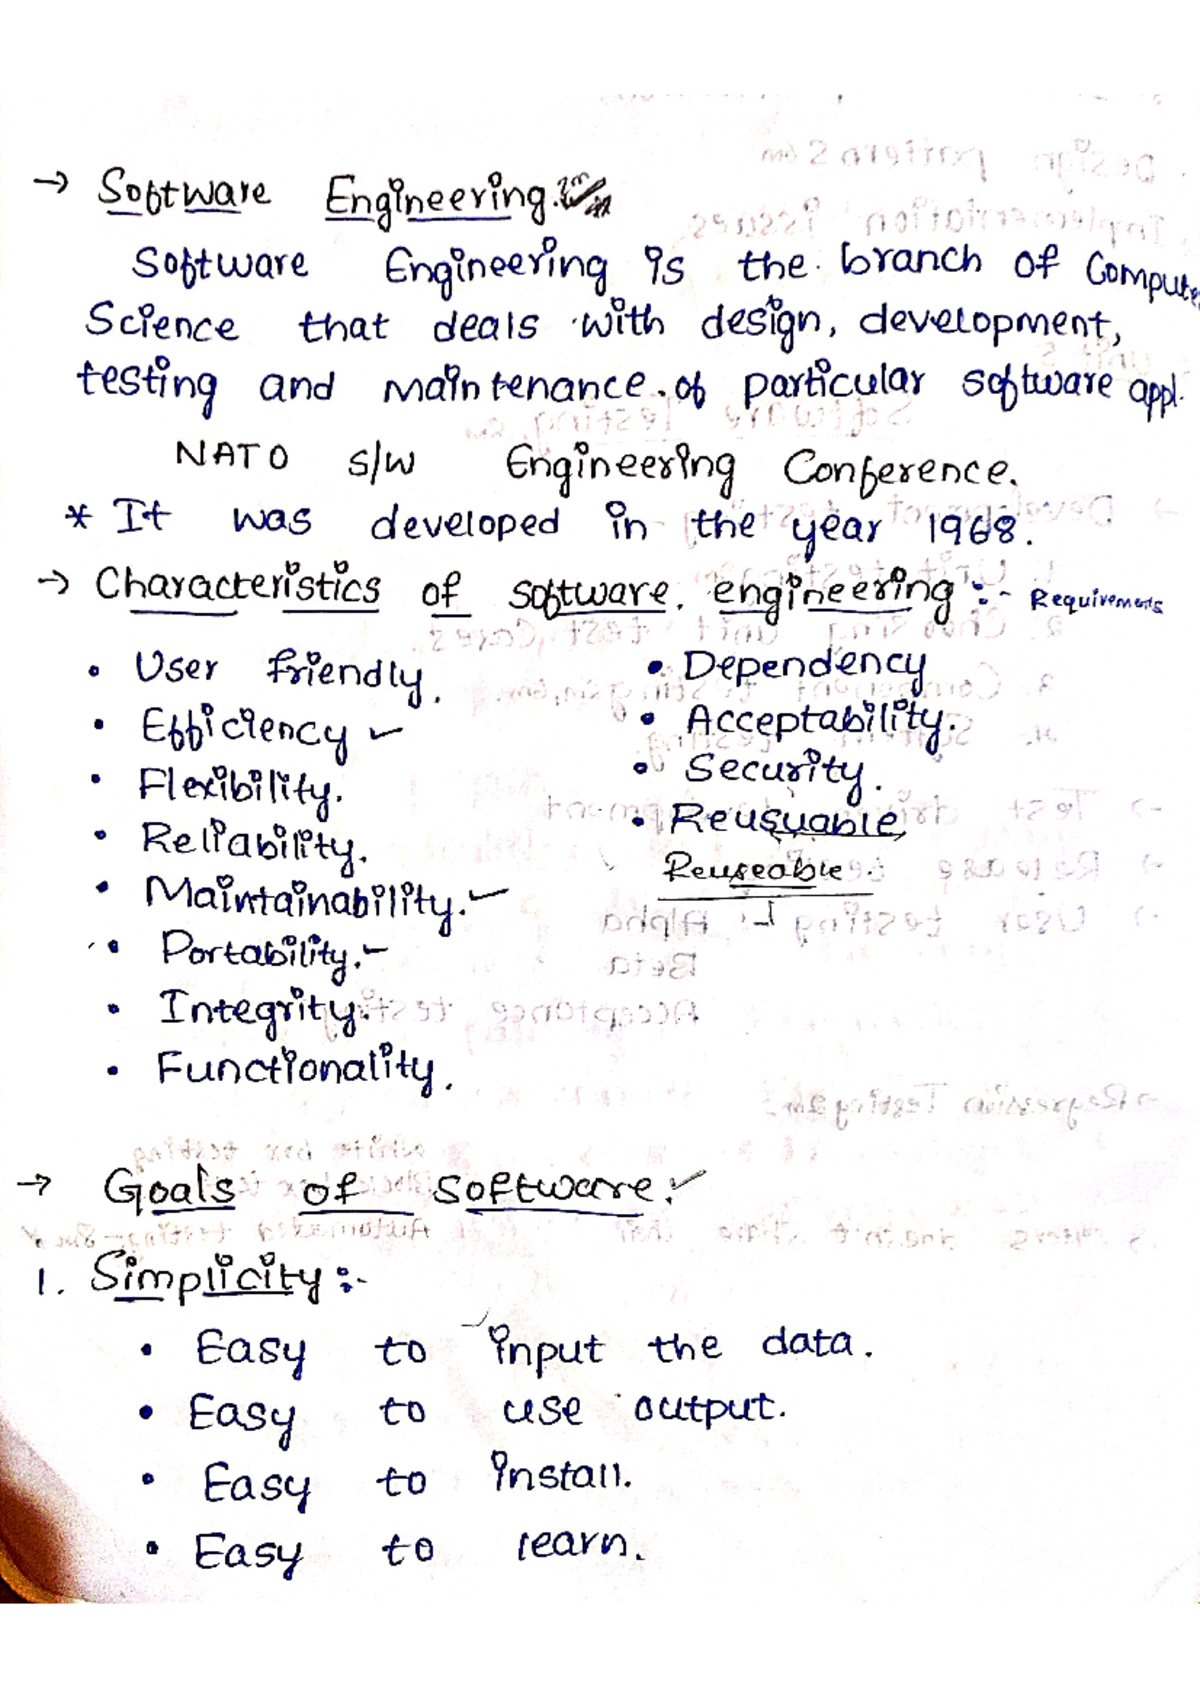 → Software Engineering.
Software Engineering is the branch of Compute
Science that deals with design, development,
testing and maintenance of particular software appl.
NATO S/W Engineering Conference.
* It was developed in the year 1968.
→ Characteristics of software engineering :- Requirements
• User friendly.
• Efficiency ✓
• Flexibility.
• Reliability.
• Maintainability. ✓
• Portability. ✓
• Integrity.
• Functionality.
• Dependency
• Acceptability.
• Security.
• Reusuable
Reuseable.
→ Goals of software. ✓
1. Simplicity :-
• Easy to input the data.
• Easy to use output.
• Easy to install.
• Easy to learn.